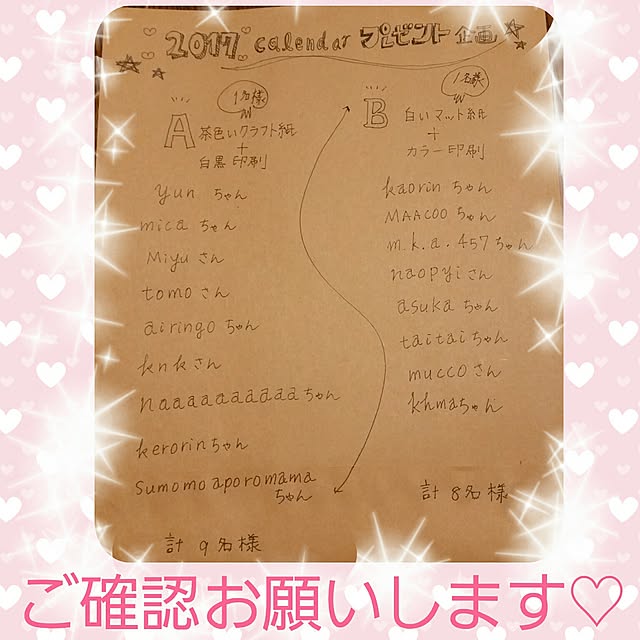 2017 calendar プレゼント企画
1名様
A
茶色いクラフト紙
+
白黒印刷
yun ちゃん
mica ちゃん
Miyu さん
tomo さん
airingo ちゃん
knk さん
naaaaaaaaaa ちゃん
kerorin ちゃん
sumomoaporomama
ちゃん
計 9名様
1名様
B
白いマット紙
+
カラー印刷
kaorin ちゃん
MAACOO ちゃん
m.k.a.457 ちゃん
naopyi さん
asuka ちゃん
taitai ちゃん
mucco さん
khma ちゃん
計 8名様
ご確認お願いします♡